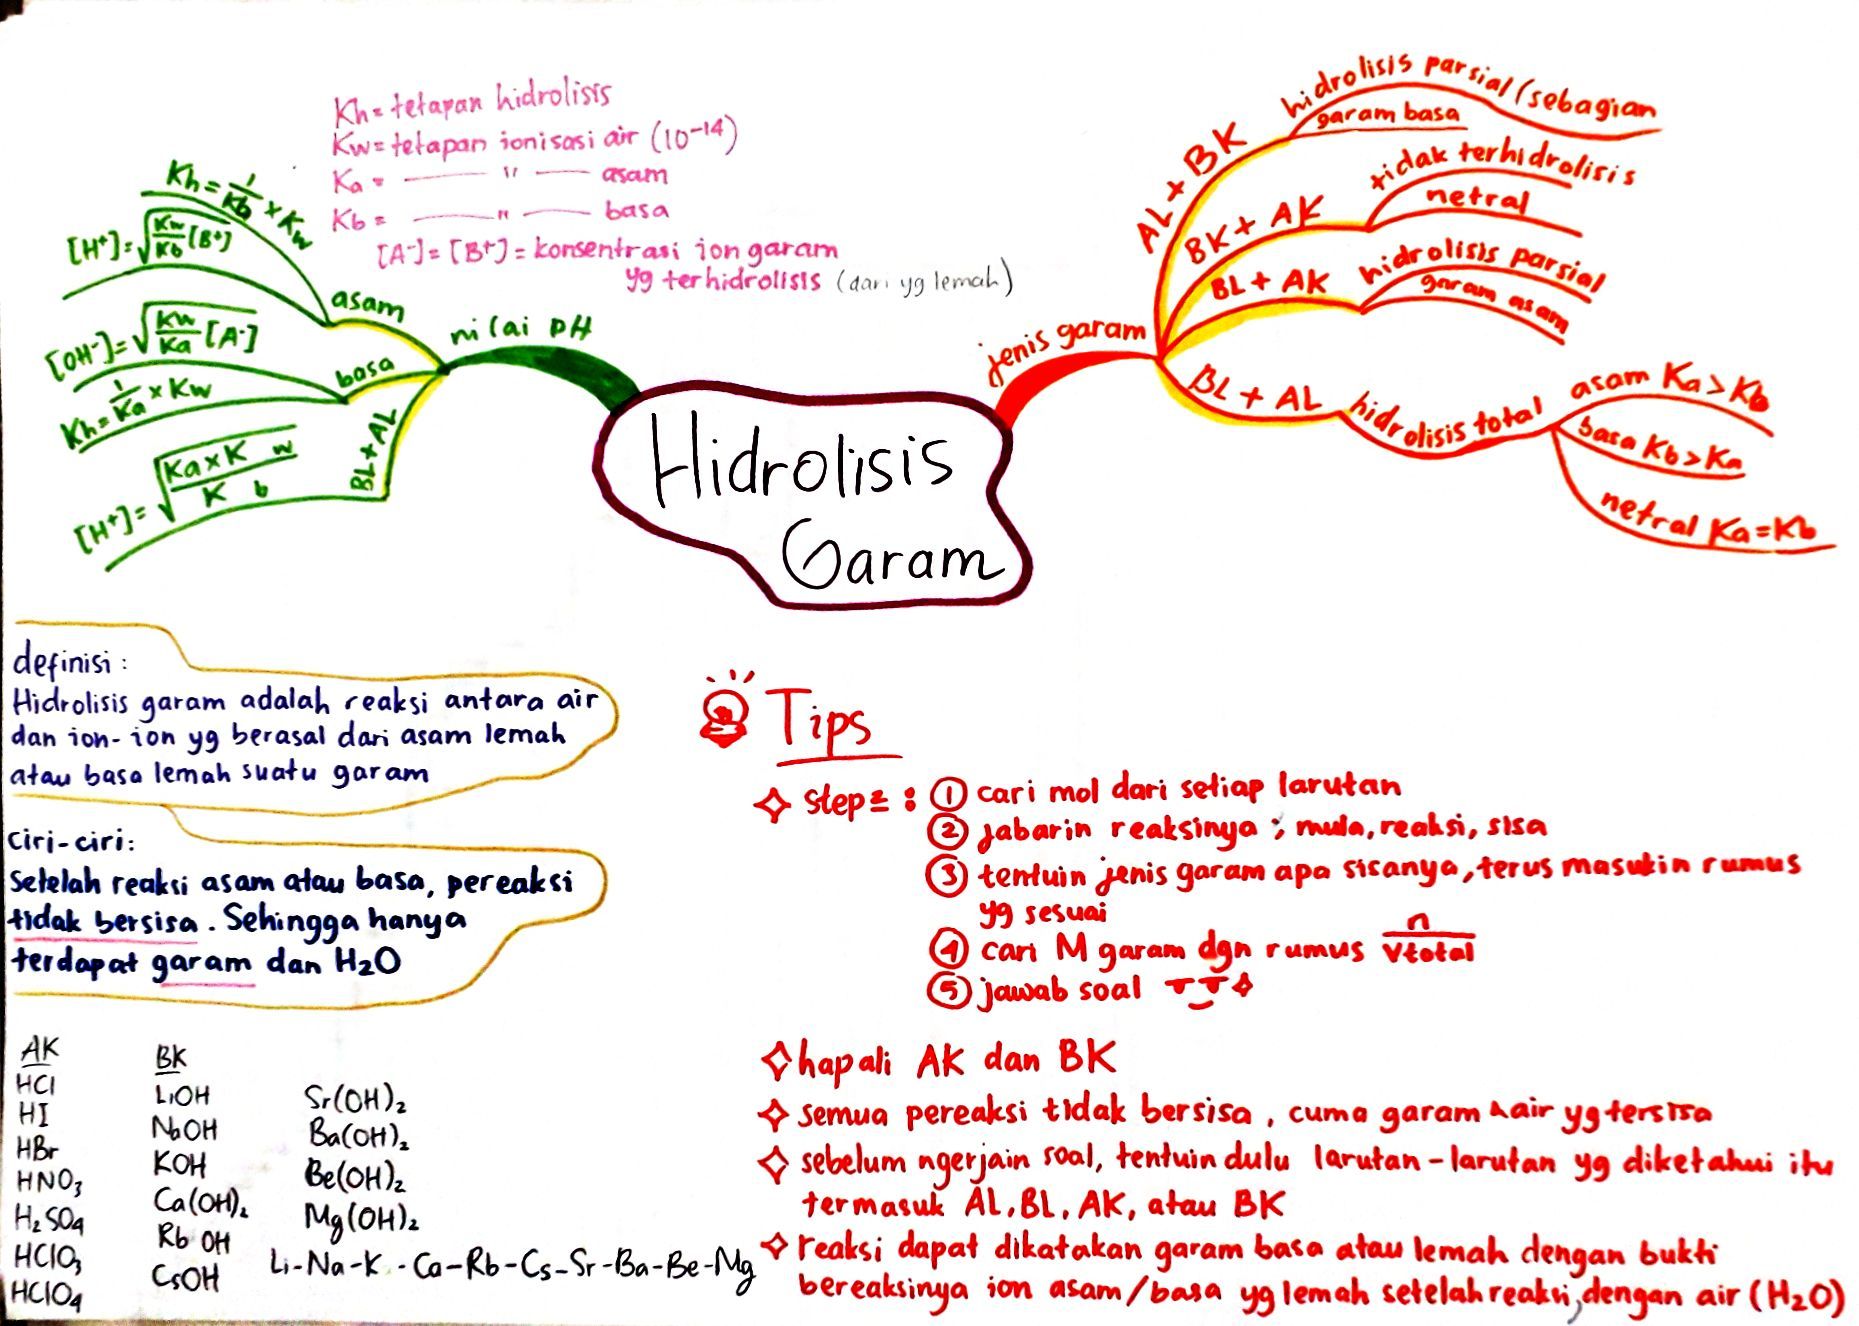 Kh = tetapan hidrolisis
Kw = tetapan ionisasi air (10⁻¹⁴)
Ka = —— " —— asam
Kb = —— " —— basa
[A⁻] = [B⁺] = konsentrasi ion garam
yg terhidrolisis (dari yg lemah)
nilai pH
asam
Kh = 1/Kb × Kw
[H⁺] = √(Kw/Kb [B⁺])
basa
[OH⁻] = √(Kw/Ka [A⁻])
Kh = 1/Ka × Kw
BL + AL
[H⁺] = √(Ka × Kw / Kb)
Hidrolisis
Garam
jenis garam
AL + BK
hidrolisis parsial (sebagian
garam basa
BK + AK
tidak terhidrolisis
netral
BL + AK
hidrolisis parsial
garam asam
BL + AL
hidrolisis total
asam Ka > Kb
basa Kb > Ka
netral Ka = Kb
definisi :
Hidrolisis garam adalah reaksi antara air
dan ion-ion yg berasal dari asam lemah
atau basa lemah suatu garam
ciri-ciri:
Setelah reaksi asam atau basa, pereaksi
tidak bersisa. Sehingga hanya
terdapat garam dan H₂O
AK
HCl
HI
HBr
HNO₃
H₂SO₄
HClO₃
HClO₄
BK
LiOH
NaOH
KOH
Ca(OH)₂
Rb OH
CsOH
Sr(OH)₂
Ba(OH)₂
Be(OH)₂
Mg(OH)₂
Li-Na-K-Ca-Rb-Cs-Sr-Ba-Be-Mg
Tips
step² : ① cari mol dari setiap larutan
② jabarin reaksinya ; mula, reaksi, sisa
③ tentuin jenis garam apa sisanya, terus masukin rumus
yg sesuai
④ cari M garam dgn rumus n/Vtotal
⑤ jawab soal
hapali AK dan BK
semua pereaksi tidak bersisa, cuma garam & air yg tersisa
sebelum ngerjain soal, tentuin dulu larutan-larutan yg diketahui itu
termasuk AL, BL, AK, atau BK
reaksi dapat dikatakan garam basa atau lemah dengan bukti
bereaksinya ion asam/basa yg lemah setelah reaksi, dengan air (H₂O)